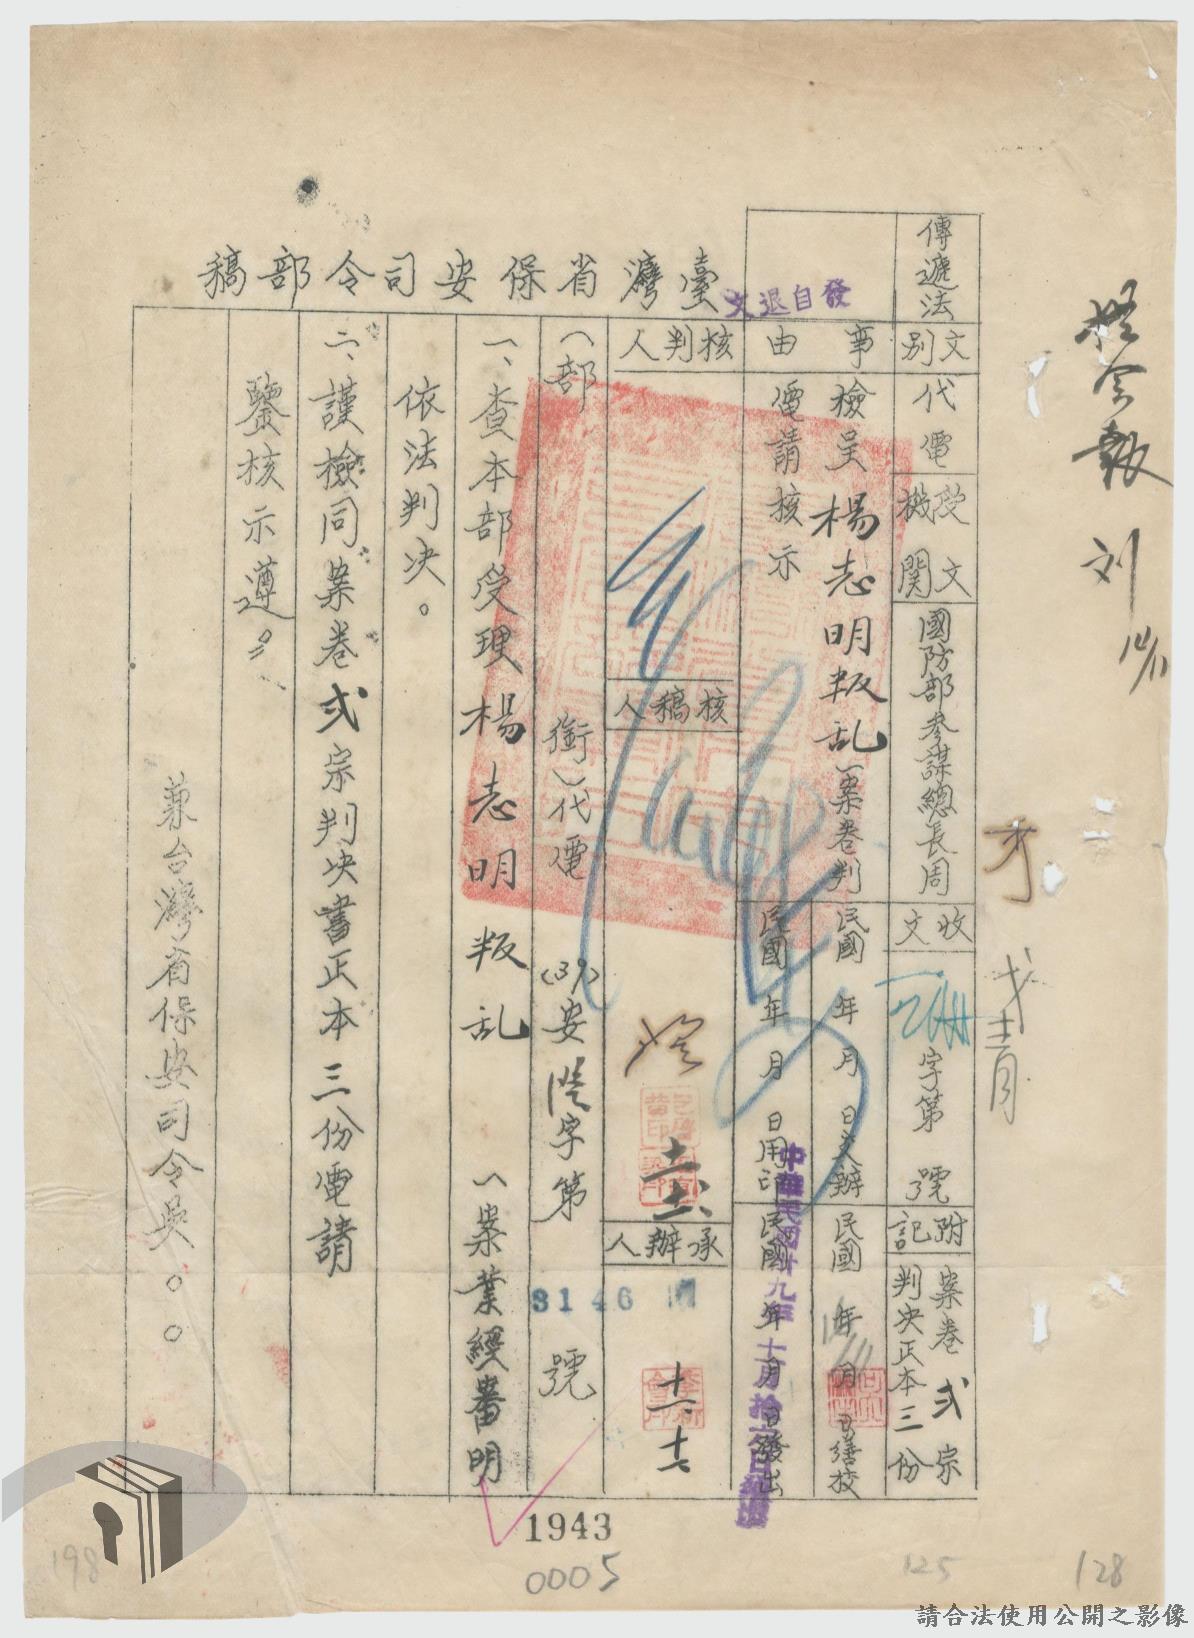 臺灣省保安司令部稿
發自退文
傳遞法
文別
代電
受文機關
國防部參謀總長周
收文
字第 號
附記
案卷弍宗
判決正本三份
事由
檢呈楊志明叛乱一案卷判
電請核示
民國 年 月 日交辦
民國 年 月 日繕校
民國 年 月 日用印
民國 年 月 日發出
核判人
核稿人
承辦人
(部 銜)代電
(39)安 字第 號
3146
一、查本部受理楊志明叛乱一案業經審明
依法判決。
二、謹檢同案卷弍宗判決書正本三份電請
鑒核示遵。
兼台灣省保安司令吳。。
1943
0005
198
125
128
請合法使用公開之影像